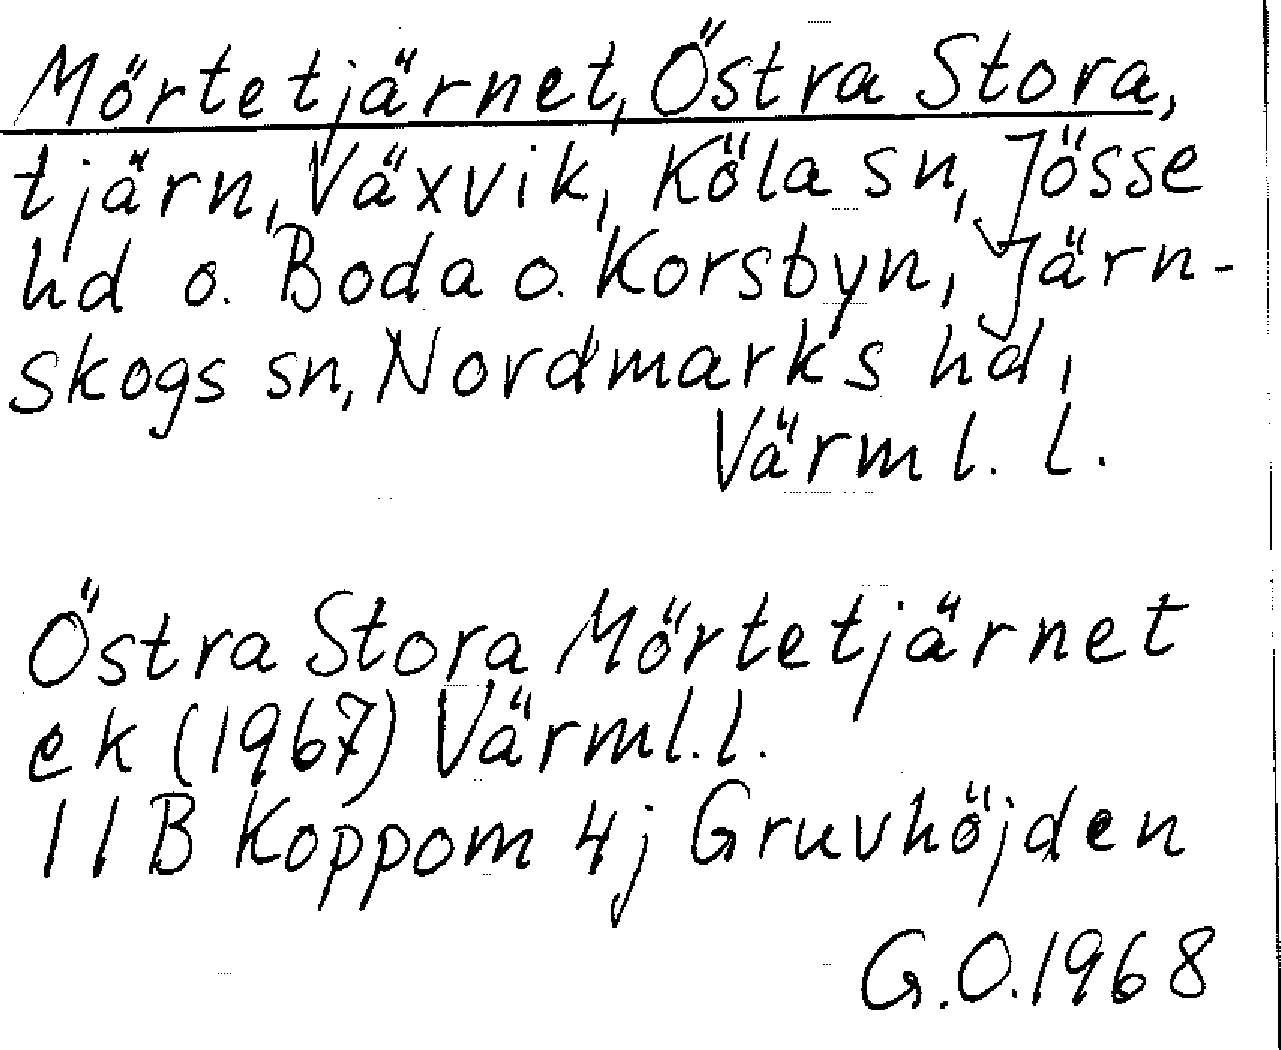 Mörtetjärnet, Östra Stora,
tjärn, Växvik, Köla sn, Jösse
hd o. Boda o. Korsbyn, Järn-
skogs sn, Nordmarks hd,
Värml. l.
Östra Stora Mörtetjärnet
ek (1967) Värml. l.
11B Koppom 4j Gruvhöjden
G.O. 1968